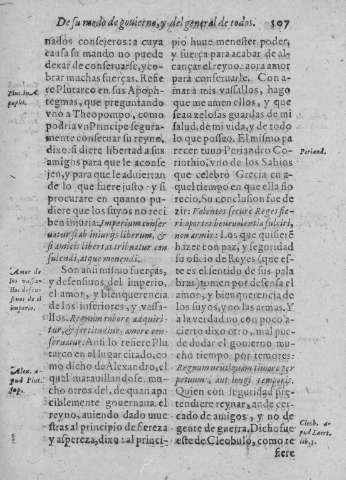 De su modo de gouierno, y del general de todos. 307
nados consejeros: a cuya
causa su mando no puede
dexar de conseruarse, y co-
brar muchas fuerças. Refie
re Plutarco en sus Apoph-
tegmas, que preguntando
vno a Theopompo, como
podria vn Principe segura-
mente conseruar su reyno,
dixo: si diere libertad a sus
amigos para que le aconse
jen, y para que le aduiertan
de lo que fuere justo: y si
procurare en quanto pu-
diere que los suyos no reci
ben injuria: Imperium conser
uatur, si ab iniurijs liberum, &
si amicis libertas tribuatur con
sulendi, atque monendi.
Son ansi mismo fuerças,
y defensiuos del imperio,
el amor, y bienquerencia
de los inferiores, y vassa-
llos. Regnum robore adquiri-
tur, & fortitudine, amore con-
seruatur. Ansi lo refiere Plu
tarco en el lugar citado, co
mo dicho de Alexandro, el
qual marauillandose, mu-
chos otros del, de quan apa
ciblemente gouernaua el
reyno, auiendo dado mue-
stras al principio de fiereza
y aspereza, dixo: al princi-
Amor de
los vassa-
llos defen-
siuos de el
imperio.
Alex. a-
pud Plut.
sup.
pio huue menester poder,
y fuerça para acabar de al-
cançar el reyno: aora amor
para conseruarle. Con a-
mar a mis vassallos, hago
que me amen ellos, y que
sean zelosas guardas de mi
salud, de mi vida, y de todo
lo que posseo. El mismo pa
recer tuuo Periandro Co-
rinthio, vno de los Sabios
que celebrò Grecia en a-
quel tiempo en que ella flo
recio, Su conclusion fue de
zir: Volentes securè Reges fie-
ri oportet beneuolentia fulciri,
non armis: Los que quisierē
hazer con paz, y seguridad
su oficio de Reyes (que es-
te es el sentido de sus pala
bras) tomen por defensa el
amor, y bienquerencia de
los suyos, y no las armas. Y
a la verdad no con poco a-
cierto dixo otro, mal pue-
de dudar el gouierno mu-
cho tiempo por temores:
Regnum
Quien con seguridad pre-
tendiere reynar, ande cer-
cado de amigos, y no de
gente de guerra. Dicho fue
este de Cleobulo, como re
fiere
Periand.
Cleob. a-
pud Laert.
lib. 1.